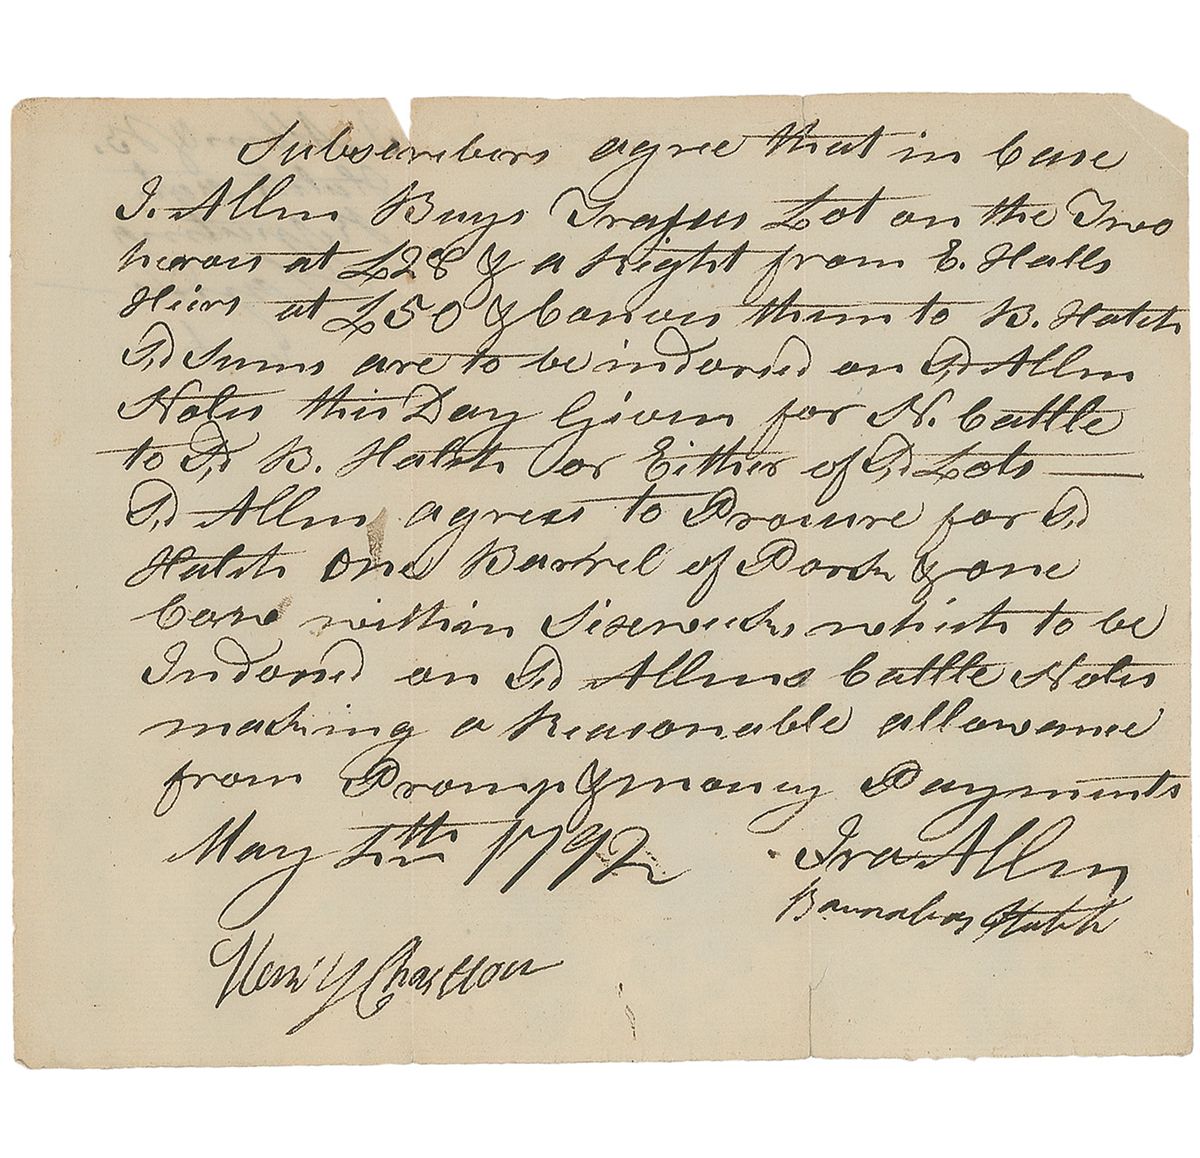 Subscribers agree that in Case
I. Allen Buys Lot on the Two
herows at £28 & a Right from E. Halls
Hiers at £50 & Convais them to B. Hatch
Sd Sums are to be indorsed on Sd Allen
Notes this Day Given for N. Cattle
to Sd B. Hatch or Either of Sd Lots —
Sd Allen agrees to Procure for Sd
Hatch One Barrel of Pork & one
Cow within Sixe weeks which to be
Indorsd on Sd Allens Cattle Notes
making a Reasonable allowance
from Promp & money Payments
May 1792
Ira Allen
Barnabas Hatch
Henry